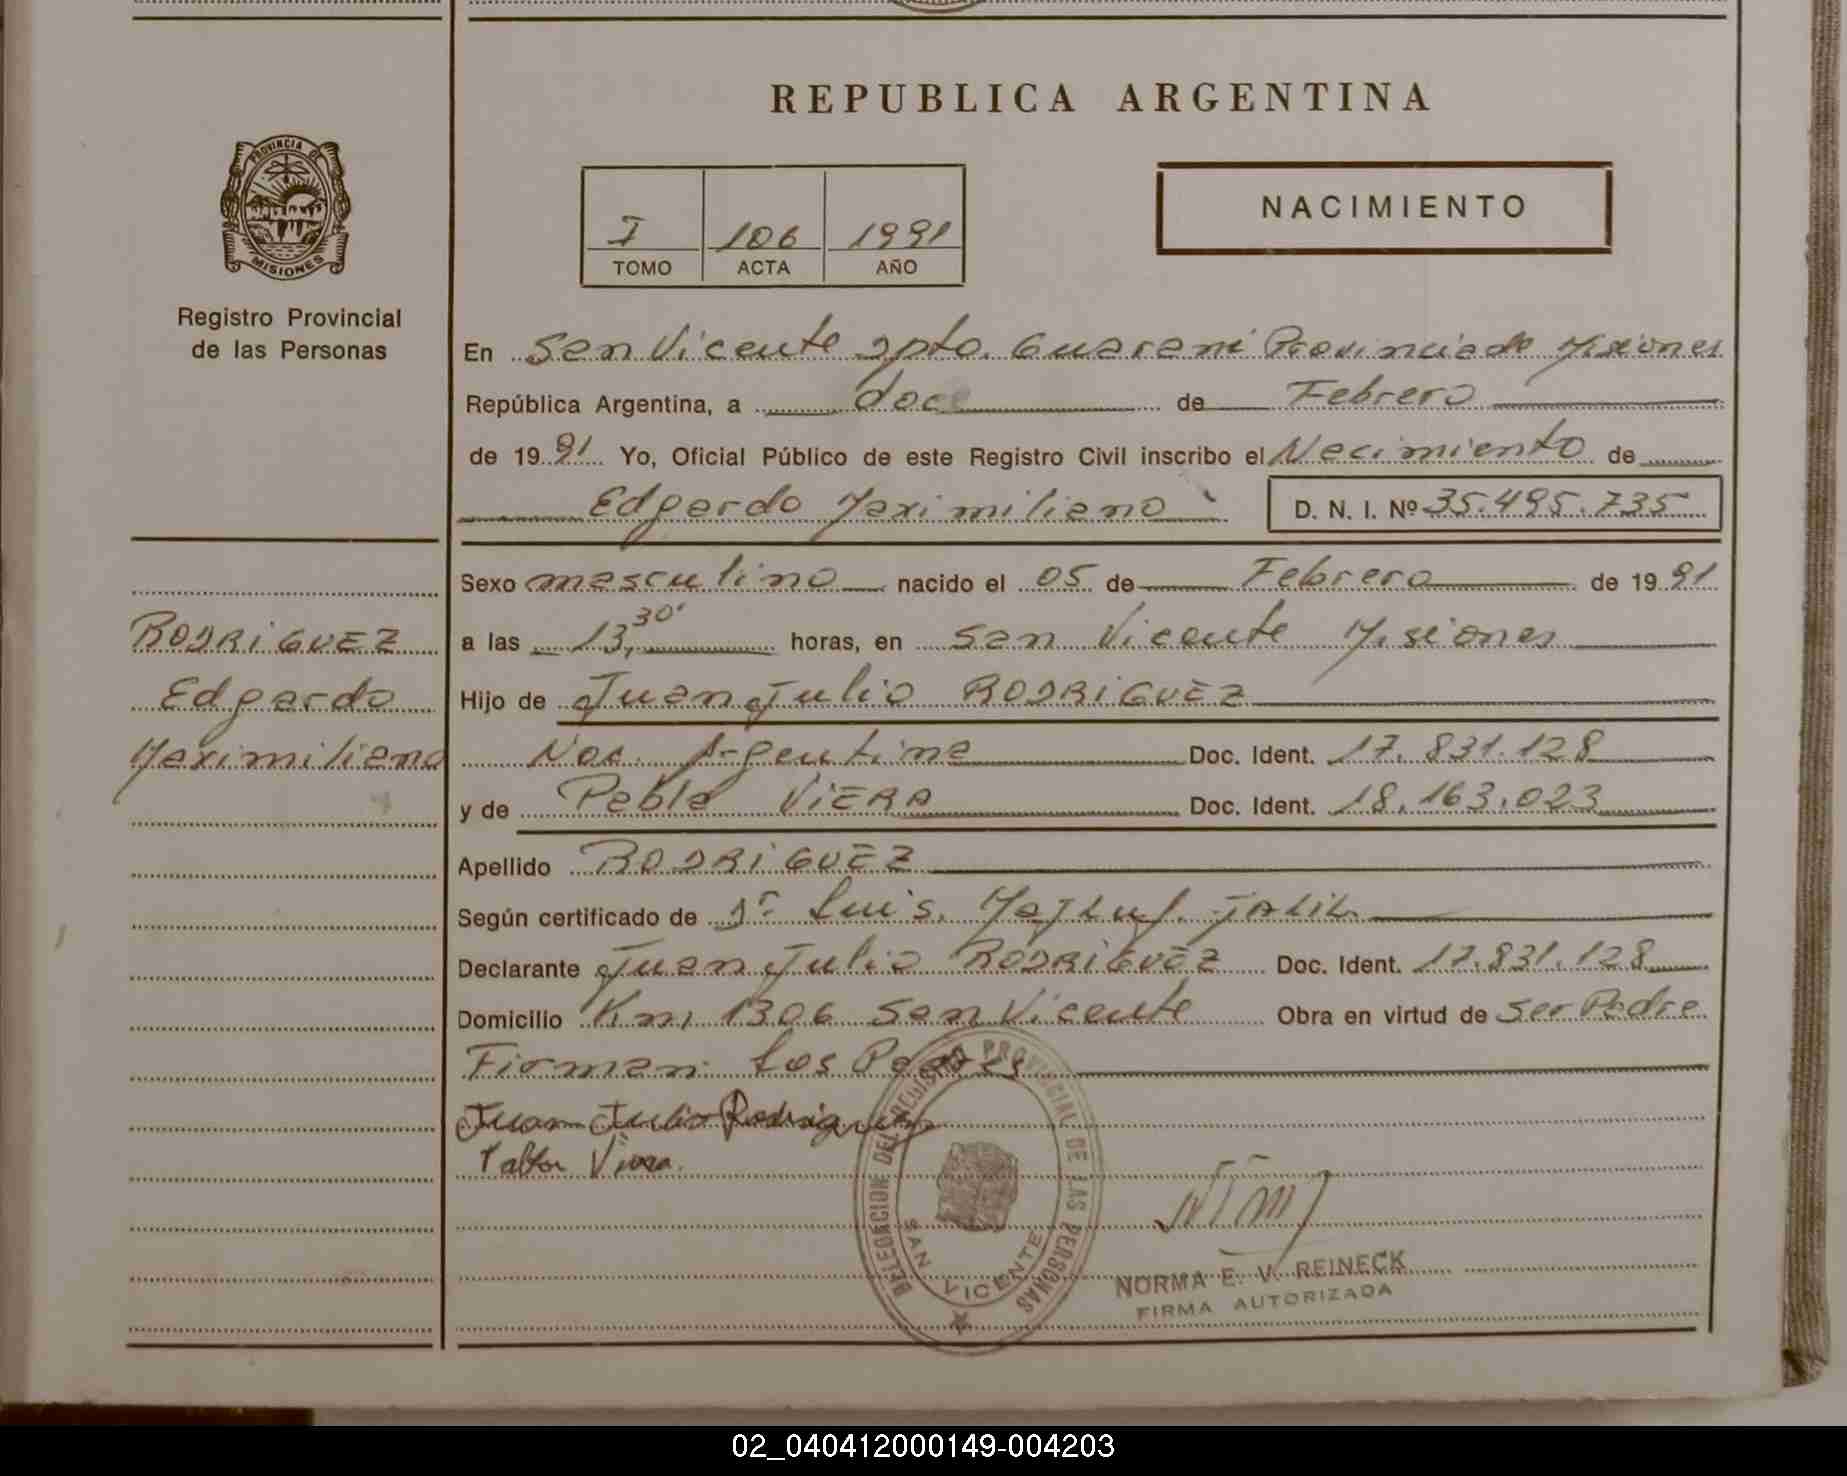 REPUBLICA ARGENTINA
PROVINCIA DE
MISIONES
Registro Provincial
de las Personas
I 106 1991
TOMO ACTA AÑO
NACIMIENTO
En San Vicente Dpto. Guarani Provincia de Misiones
República Argentina, a doce de Febrero
de 1991 Yo, Oficial Público de este Registro Civil inscribo el Nacimiento de
Edgardo Maximiliano D. N. I. Nº 35.495.735
Sexo masculino nacido el 05 de Febrero de 1991
a las 13,30' horas, en San Vicente Misiones
Hijo de Juan Julio RODRIGUEZ
Nac. Argentina Doc. Ident. 17.831.128
y de Pabla VIERA Doc. Ident. 18.163.023
Apellido RODRIGUEZ
Según certificado de Dr. Luis JALIL
Declarante Juan Julio RODRIGUEZ Doc. Ident. 17.831.128
Domicilio Km, 1306 San Vicente Obra en virtud de ser Padre
Firman: Los Padres
Juan Julio Rodriguez
Viera.
RODRIGUEZ
Edgardo
Maximiliano
DELEGACION DEL REGISTRO PROVINCIAL DE LAS PERSONAS
SAN VICENTE
NORMA E. V. REINECK
FIRMA AUTORIZADA
02_040412000149-004203